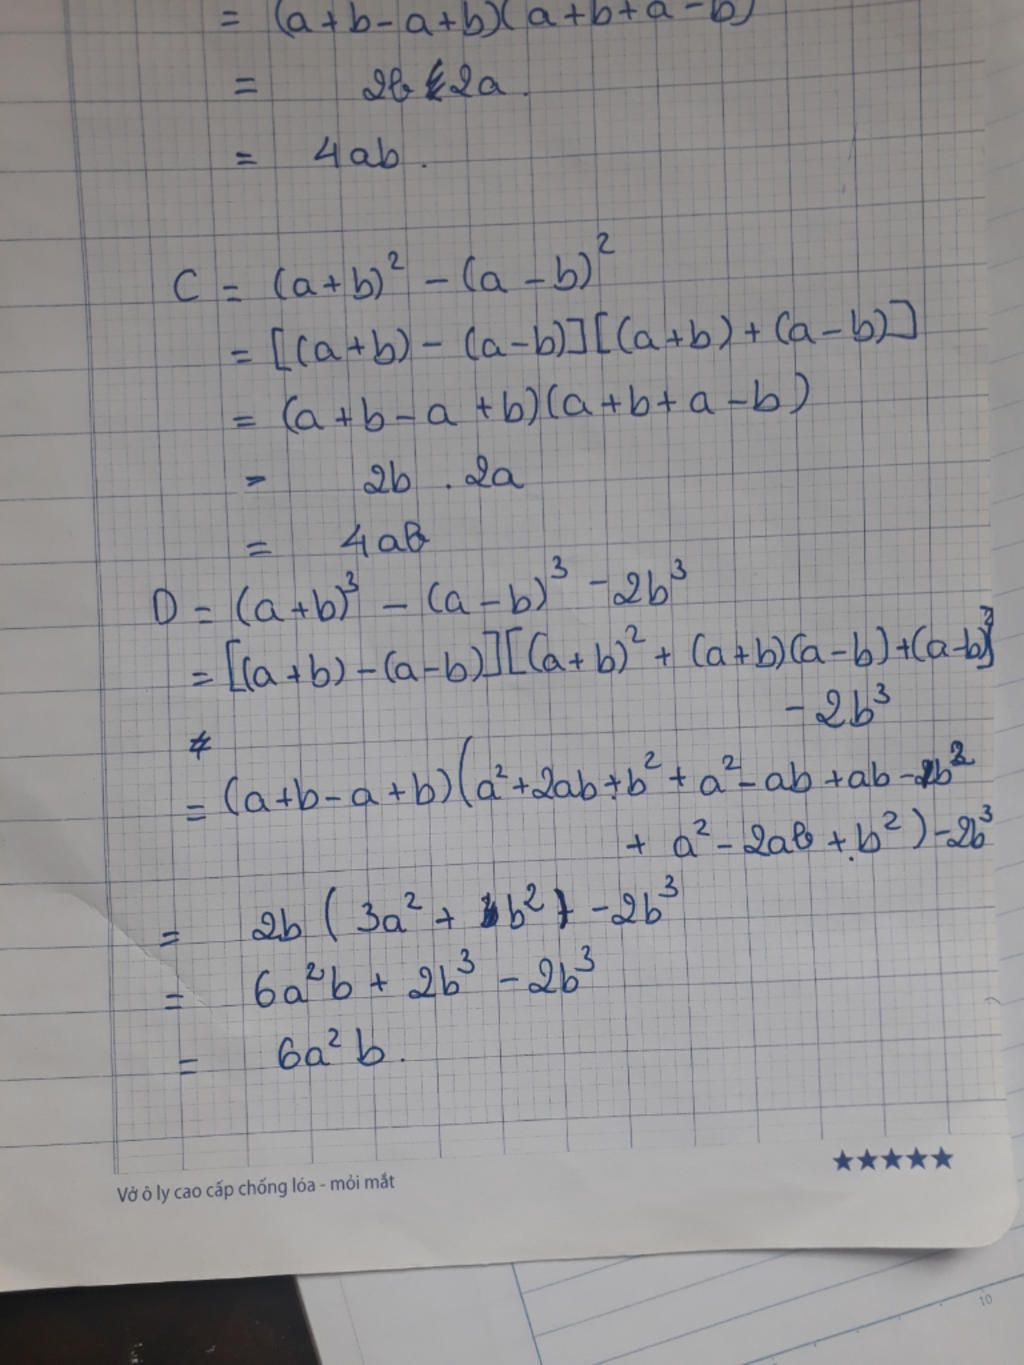 = (a+b-a+b)(a+b+a-b)
= 2b 2a.
= 4ab.
C = (a+b)² - (a-b)²
= [(a+b) - (a-b)][(a+b) + (a-b)]
= (a+b-a+b)(a+b+a-b)
= 2b . 2a
= 4ab
D = (a+b)³ - (a-b)³ - 2b³
= [(a+b) - (a-b)][(a+b)² + (a+b)(a-b) + (a-b)²]
- 2b³
= (a+b-a+b)(a²+2ab+b² + a² - ab + ab - b²
+ a² - 2ab + b²) - 2b³
= 2b (3a² + b²) - 2b³
= 6a²b + 2b³ - 2b³
= 6a²b.
★★★★★
Vở ô ly cao cấp chống lóa - mỏi mắt
10